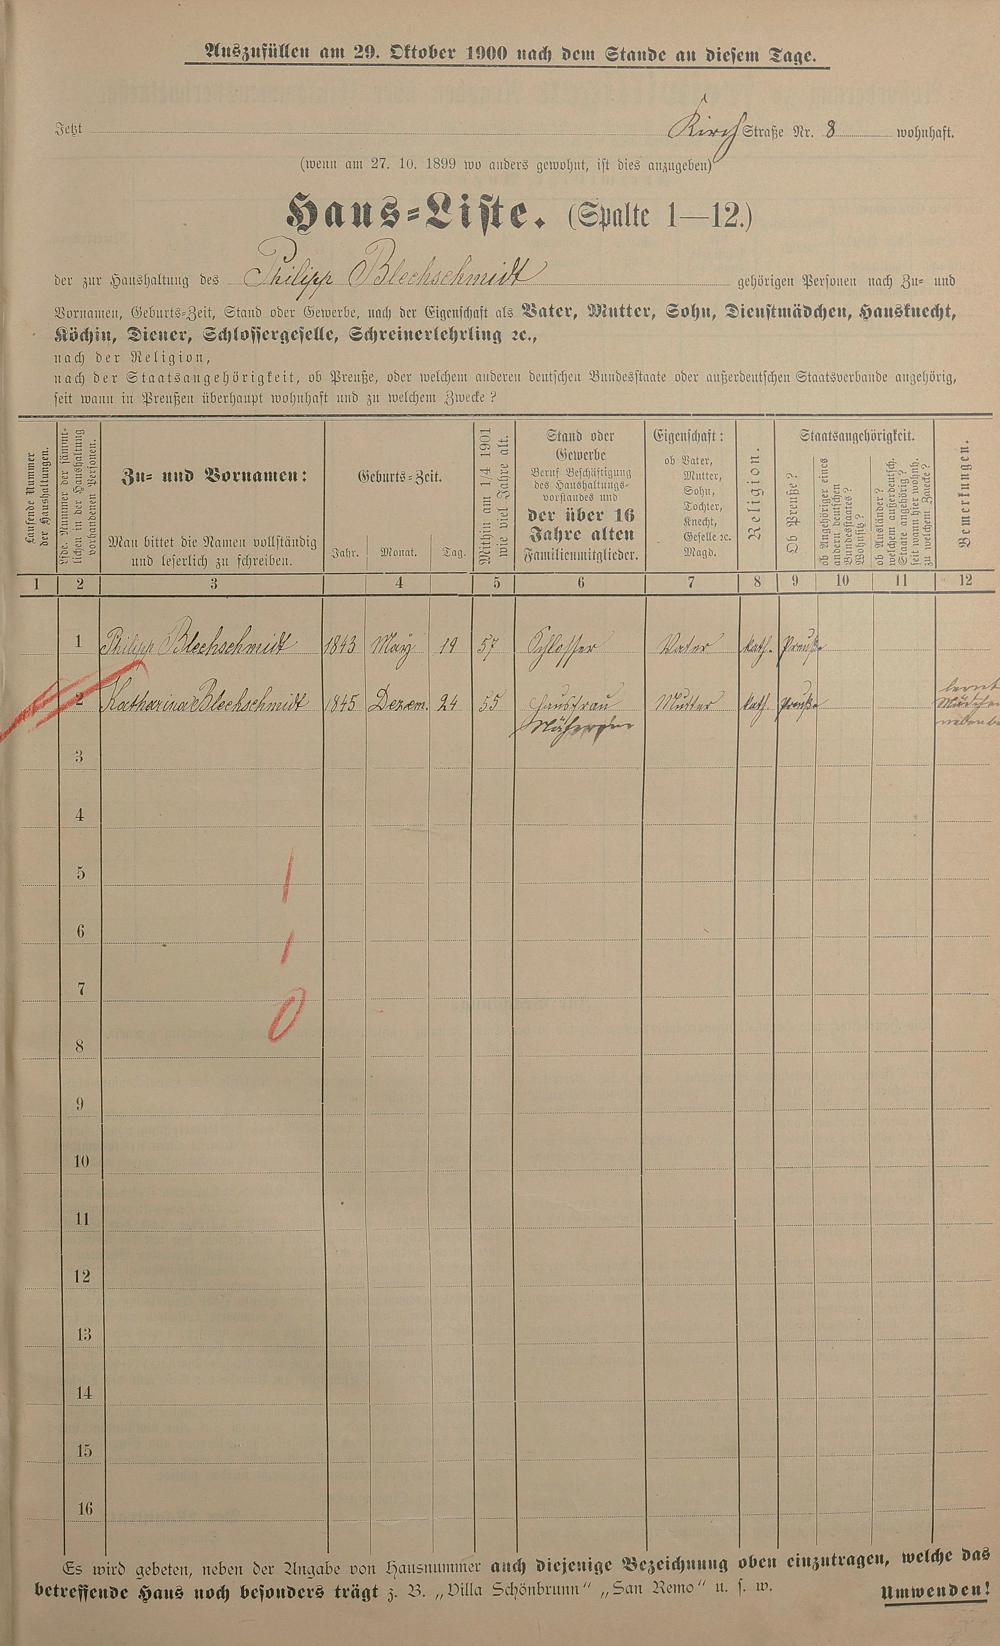 Auszufüllen am 29. Oktober 1900 nach dem Stande an diesem Tage.
Jetzt Kirch Straße Nr. 8 wohnhaft.
(wenn am 27. 10. 1899 wo anders gewohnt, ist dies anzugeben)
Haus-Liste. (Spalte 1—12.)
der zur Haushaltung des Philipp Blechschmidt gehörigen Personen nach Zu- und
Vornamen, Geburts-Zeit, Stand oder Gewerbe, nach der Eigenschaft als Vater, Mutter, Sohn, Dienstmädchen, Hausknecht,
Köchin, Diener, Schlossergeselle, Schreinerlehrling ꝛc.,
nach der Religion,
nach der Staatsangehörigkeit, ob Preuße, oder welchem anderen deutschen Bundesstaate oder außerdeutschen Staatsverbande angehörig,
seit wann in Preußen überhaupt wohnhaft und zu welchem Zwecke?
Laufende Nummer
der Haushaltungen.
Lfde. Nummer der sämmt-
lichen in der Haushaltung
vorhandenen Personen.
Zu- und Vornamen:
Man bittet die Namen vollständig
und leserlich zu schreiben.
Geburts-Zeit.
Jahr. Monat. Tag.
Mithin am 1/4 1901
wie viel Jahre alt.
Stand oder
Gewerbe
Beruf Beschäftigung
des Haushaltungs-
vorstandes und
der über 16
Jahre alten
Familienmitglieder.
Eigenschaft:
ob Vater,
Mutter,
Sohn,
Tochter,
Knecht,
Geselle ꝛc.
Magd.
Religion.
Staatsangehörigkeit.
Ob Preuße?
ob Angehöriger eines
andern deutschen
Bundesstaates?
Wohnsitz?
ob Ausländer?
welchem außerdeutsch.
Staate angehörig?
seit wann hier wohnh.
zu welchem Zwecke?
Bemerkungen.
1 2 3 4 5 6 7 8 9 10 11 12
1 Philipp Blechschmidt 1843 May 19 57 Schlosser Vater kath. Preuße
2 Katharina Blechschmidt 1845 Dezem. 24 55 Hausfrau Mutter kath. Preuße
3
4
5
6
7
8
9
10
11
12
13
14
15
16
1
1
0
Es wird gebeten, neben der Angabe von Hausnummer auch diejenige Bezeichnung oben einzutragen, welche das
betreffende Haus noch besonders trägt z. B. „Villa Schönbrunn“ „San Remo“ u. s. w. Umwenden!